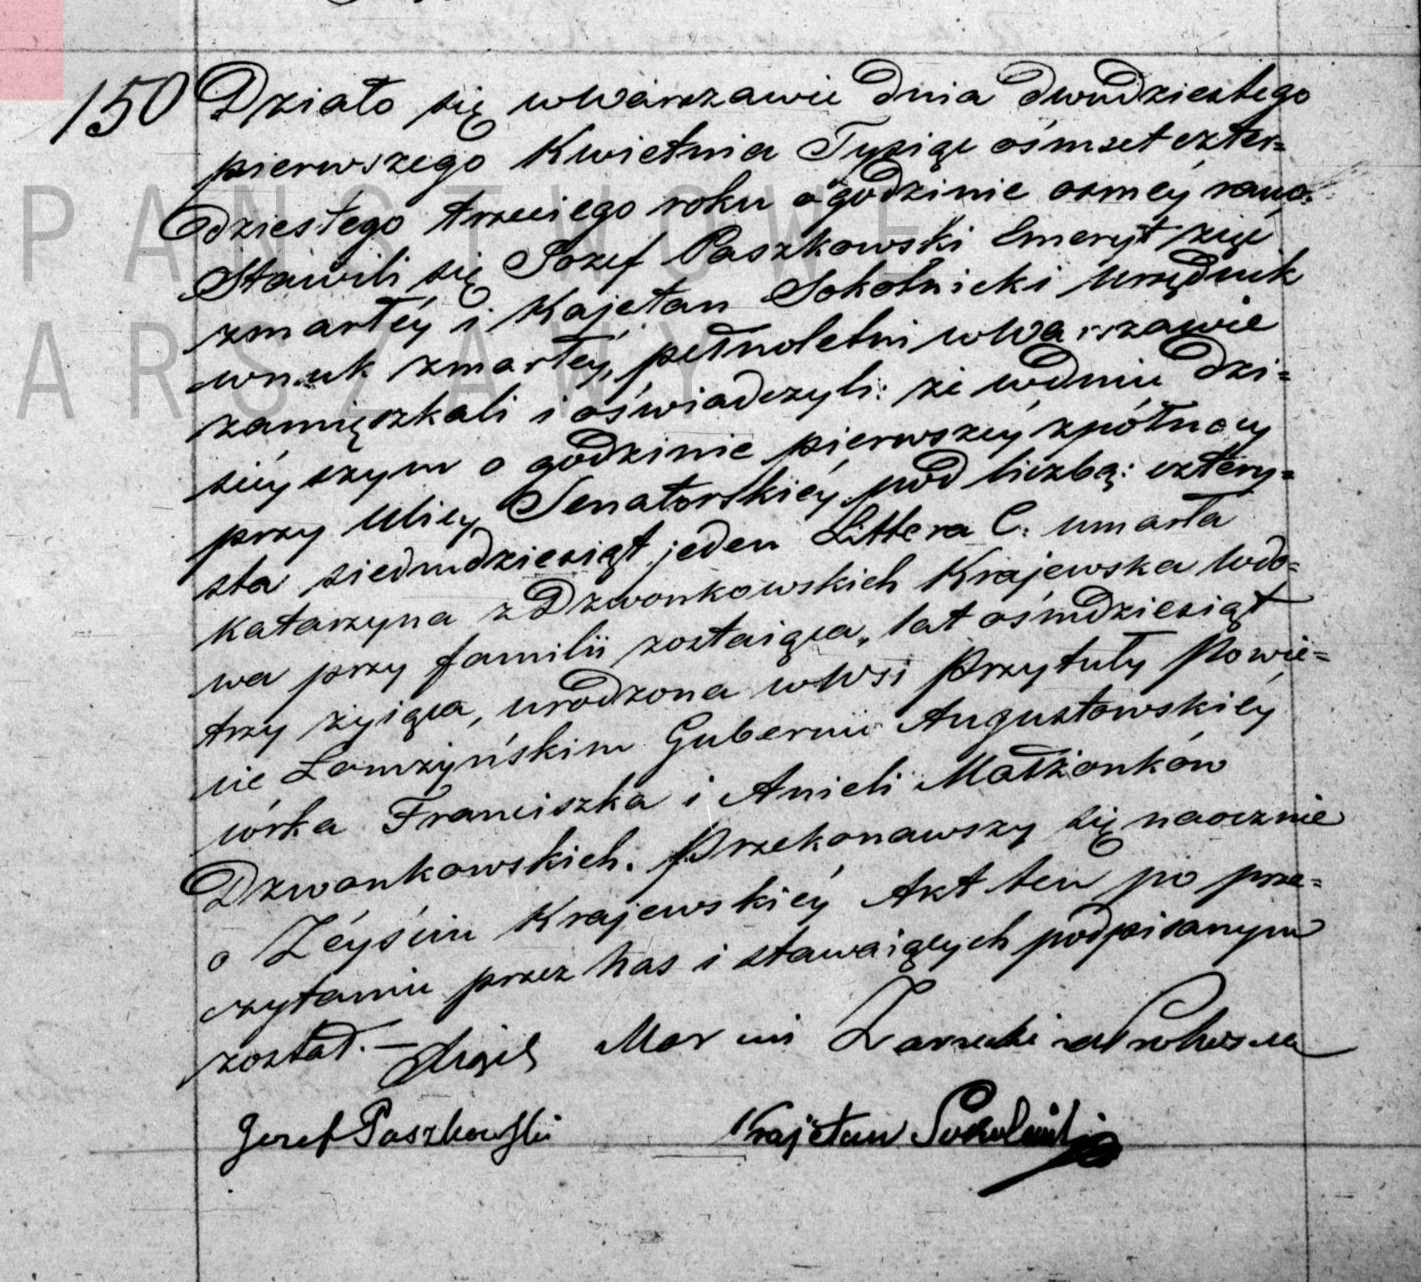 150 Działo się w Warszawie dnia dwudziestego
pierwszego Kwietnia Tysiąc ośmset czter=
dziestego trzeciego roku o godzinie osméy rano.
Stawili się Jozef Paszkowski Emeryt zięć
zmarłéy i Kajetan Sokolnicki Urzędnik
wnuk zmarłéy, pełnoletni w Warszawie
zamięszkali i oświadczyli: że w dniu dzi=
sieyszym o godzinie pierwszéy z północy
przy Ulicy Senatorskiéy pod liczbą: cztery=
sta siedmdziesiąt jeden Littera C. umarła
Katarzyna z Dzwonkowskich Krajewska Wdo=
wa przy familii zostaiąca, lat ośmdziesiąt
trzy żyiąca, urodzona w Wsi Przytuły Powie=
cie Łomżyńskim Gubernii Augustowskiéy
córka Franciszka i Anieli Małżonków
Dzwonkowskich. Przekonawszy się naocznie
o Zéyściu Krajewskiéy Akt ten po prze=
czytaniu przez nas i stawaiących podpisanym
został. —
Jozef Paszkowski Kajetan Sokolnicki
PAŃSTWOWE
ARSZAWY